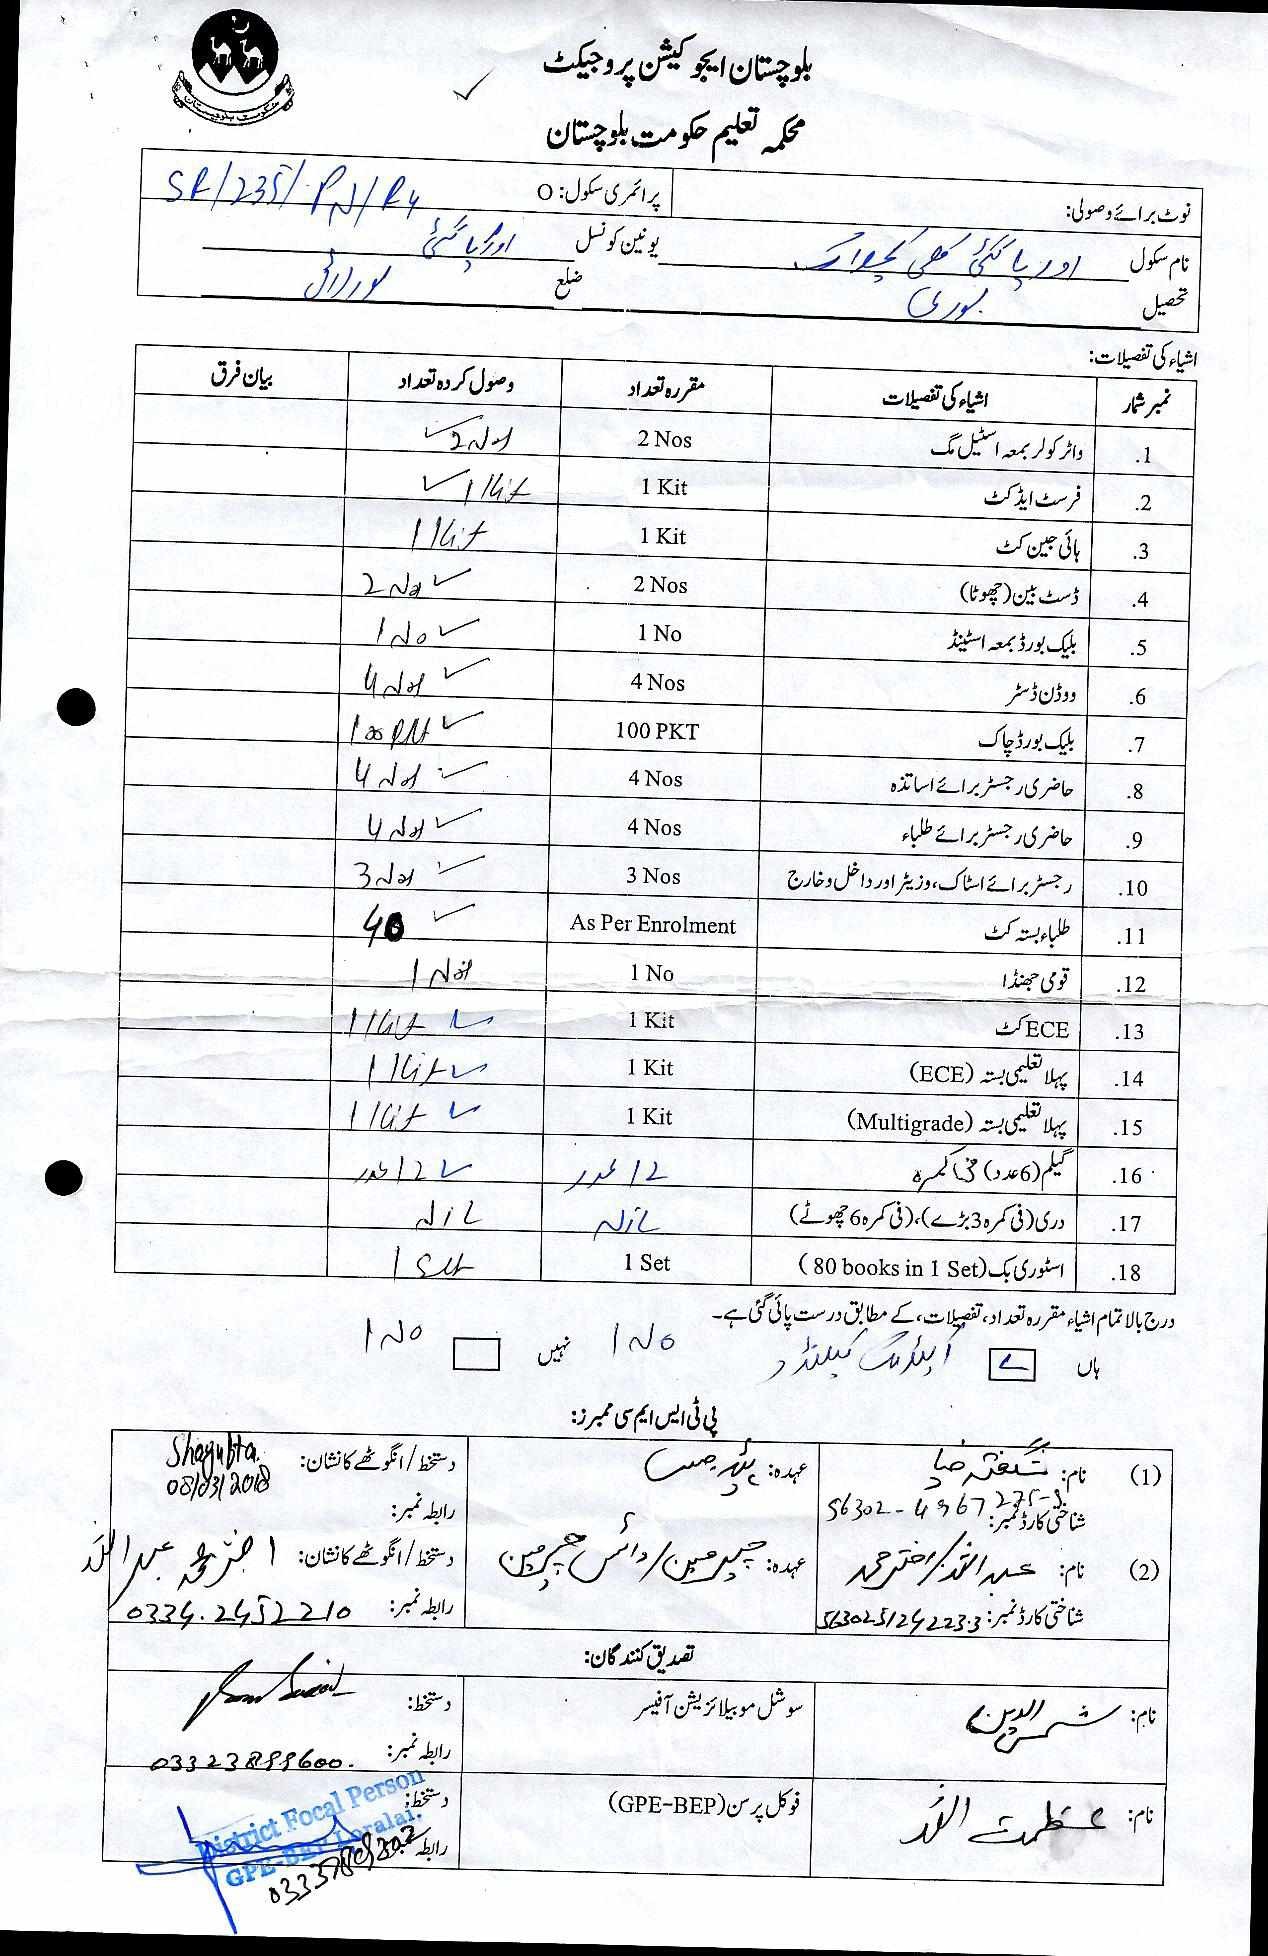 بلوچستان ایجوکیشن پروجیکٹ
محکمہ تعلیم حکومت بلوچستان
نوٹ برائے وصولی: پرائمری سکول: O SR/235/PN/R4
نام سکول یونین کونسل
تحصیل بوری ضلع لورالائی
اشیاء کی تفصیلات:
نمبر شمار اشیاء کی تفصیلات مقررہ تعداد وصول کردہ تعداد بیان فرق
1. واٹر کولر بمعہ اسٹیل مگ 2 Nos 2 Nos ✓
2. فرسٹ ایڈ کٹ 1 Kit 1 Kit ✓
3. ہائی جین کٹ 1 Kit 1 Kit
4. ڈسٹ بین (چھوٹا) 2 Nos 2 No ✓
5. بلیک بورڈ بمعہ اسٹینڈ 1 No 1 No ✓
6. ووڈن ڈسٹر 4 Nos 4 Nos ✓
7. بلیک بورڈ چاک 100 PKT 100 PKT ✓
8. حاضری رجسٹر برائے اساتذہ 4 Nos 4 Nos ✓
9. حاضری رجسٹر برائے طلباء 4 Nos 4 Nos ✓
10. رجسٹر برائے اسٹاک، وزیٹر اور داخل و خارج 3 Nos 3 Nos ✓
11. طلباء بستہ کٹ As Per Enrolment 40 ✓
12. قومی جھنڈا 1 No 1 Nos
13. ECE کٹ 1 Kit 1 Kit ✓
14. پہلا تعلیمی بستہ (ECE) 1 Kit 1 Kit ✓
15. پہلا تعلیمی بستہ (Multigrade) 1 Kit 1 Kit ✓
16. گیلم (6 عدد) فی کمرہ 12 عدد 12 عدد ✓
17. دری (فی کمرہ 3 بڑے)، (فی کمرہ 6 چھوٹے)
18. اسٹوری بک (80 books in 1 Set) 1 Set 1 Set
درج بالا تمام اشیاء مقررہ تعداد، تفصیلات، کے مطابق درست پائی گئی ہے۔
ہاں ✓ 1 No نہیں 1 No
پی ٹی ایس ایم سی ممبرز:
(1) نام: شگفتہ ضیا عہدہ: دستخط/انگوٹھے کا نشان: Shagufta 08/03/2018
شناختی کارڈ نمبر: رابطہ نمبر:
(2) نام: عبداللہ/اختر محمد عہدہ: چیرمین/وائس چیرمین دستخط/انگوٹھے کا نشان: اختر محمد عبداللہ
شناختی کارڈ نمبر: رابطہ نمبر: 0334.2452210
تصدیق کنندگان:
نام: شمس الدین سوشل موبیلائزیشن آفیسر دستخط:
رابطہ نمبر: 03323899600.
نام: عظمت اللہ فوکل پرسن (GPE-BEP) دستخط:
رابطہ نمبر:
District Focal Person
GPE-BEP Loralai.